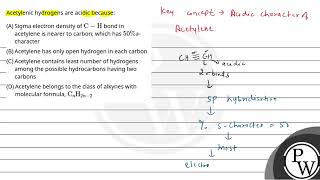 Acetylenic hydrogens are acidic because:
(A) Sigma electron density of C – H bond in
acetylene is nearer to carbon; which has 50% s-
character
(B) Acetylene has only open hydrogen in each carbon
(C) Acetylene contains least number of hydrogens
among the possible hydrocarbons having two
carbons
(D) Acetylene belongs to the class of alkynes with
molecular formula, CnH2n–2
Key concept → Acidic character of
Acetylene
CH ≡ CH → acidic
2π bonds
SP hybridisation
% S-character = 50
Most
electro
PW